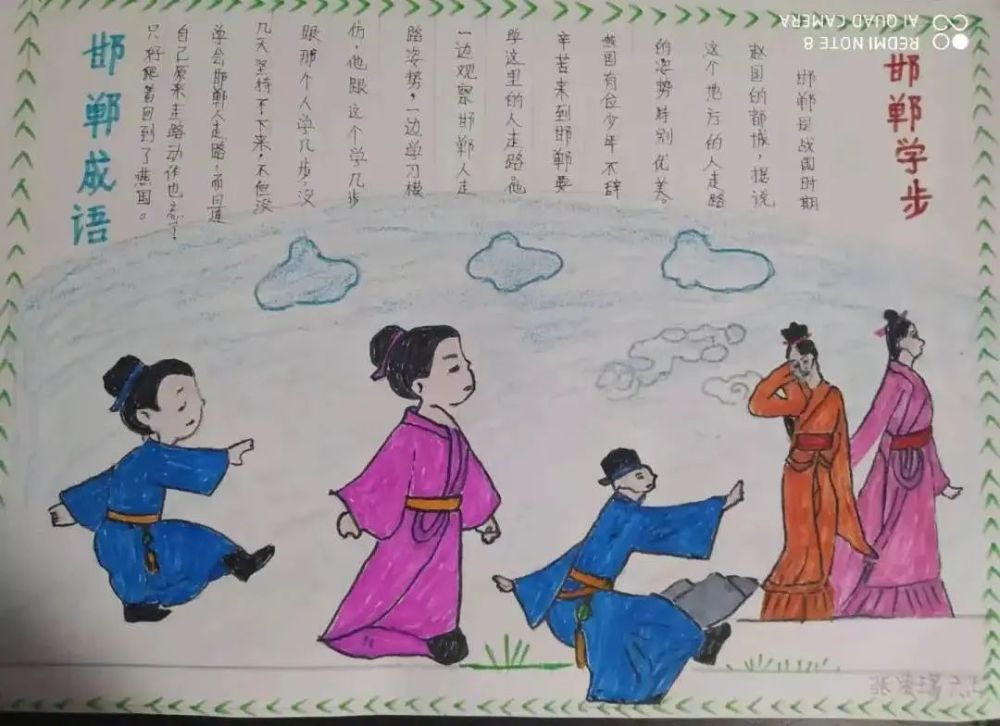 邯郸学步
邯郸是战国时期
赵国的都城，据说
这个地方的人走路
的姿势特别优美
燕国有位少年 不辞
辛苦来到邯郸要
学这里的人走路他
一边观察邯郸人走
路姿势，一边学习模
仿，他跟 这个学几步
跟那个人学几步，没
几天坚持不下来，不但没
学会邯郸人走路，而且连
自己原来走路动作也忘了
只好爬着回到了燕国。
邯郸成语
REDMI NOTE 8
AI QUAD CAMERA